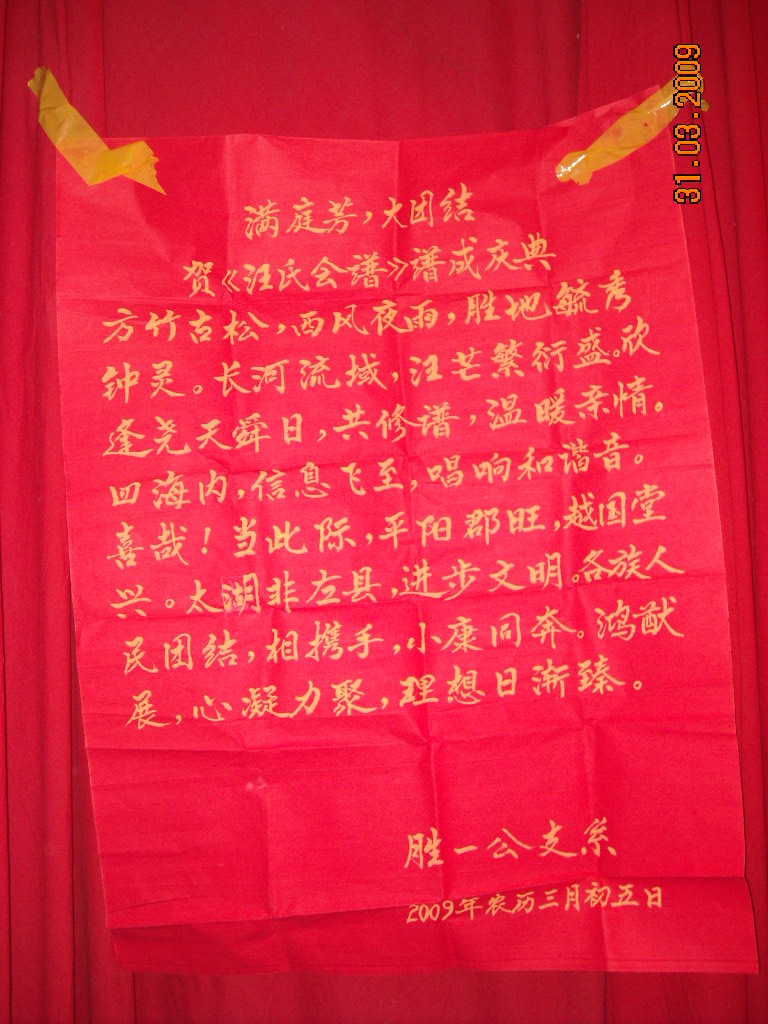 31.03.2009
满庭芳，大团结
贺《汪氏会谱》谱成庆典
方竹古松，西风夜雨，胜地毓秀
钟灵。长河流域，汪芒繁衍盛。欣
逢尧天舜日，共修谱，温暖亲情。
四海内，信息飞至，唱响和谐音。
喜哉！当此际，平阳郡旺，越国堂
兴。太湖非左县，进步文明。各族人
民团结，相携手，小康同奔。鸿猷
展，心凝力聚，理想日渐臻。
胜一公支系
2009年农历三月初五日